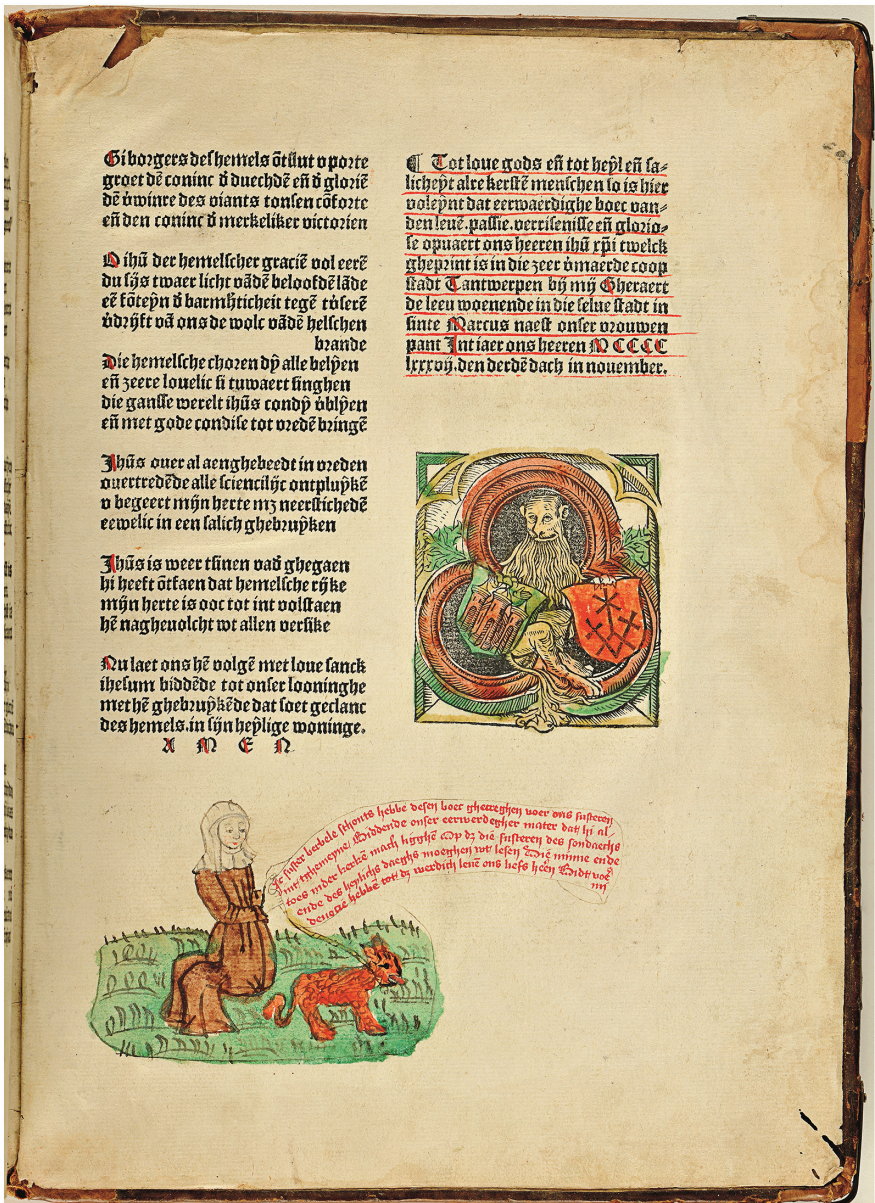 Gi borgers des hemels õtsluit v porte
groet dẽ coninc d̉ duechdẽ eñ d̉ gloriẽ
dẽ v̉winre des viants tonsen cõforte
eñ den coninc d̉ merkeliker victorien
O ihũ der hemelscher graciẽ vol eerẽ
du sijs twaer licht vãdẽ beloofdẽ lãde
eẽ fõteyn d̉ barmh̉ticheit tegẽ
v̉drijft vã ons de wolc vãdẽ helschen
brande
Die hemelsche choren dy̾ alle belyen
eñ zeere louelic si tuwaert singhen
die gansse werelt ihũs condy v̉blyen
eñ met gode condise tot vredẽ bringẽ
Jhũs ouer al aenghebeedt in vreden
ouertredẽde alle sciencilijc ontpluykẽ
v begeert mijn herte mz neerstichedẽ
eewelic in een salich ghebruyken
Jhũs is weer tsinen vad̉ ghegaen
hi heeft õtfaen dat hemelsche rijke
mijn herte is ooc tot int volstaen
hẽ nagheuolcht wt allen versike
Nu laet ons hẽ volgẽ met loue sanck
ihesum biddẽde tot onser looninghe
met hẽ ghebruykẽde dat soet geclanc
des hemels.in sijn heylige woninge.
A M E N
¶ Tot loue gods eñ tot heyl eñ sa-
licheyt alre kerstẽ menschen so is hier
voleynt dat eerwaerdighe boec van-
den leuẽ.passie.verrisenisse eñ glorio-
se opuaert ons heeren ihũ xp̃i twelck
gheprint is in die zeer v̉maerde coop
stadt Tantwerpen bij mij Gheraert
de leeu woenende in die selue stadt in
sinte Marcus naest onser vrouwen
pant Int iaer ons heeren M CCCC
lxxxvij.den derdẽ dach in nouember.
Ic suster berbele schonts hebbe desen boec ghecreghen voer ons susteren
int tghemeyne/ Biddende onser eerwerdegher mater dat hi al-
toes inder kerkẽ machligghẽ Op dz die susteren des sondaechs
ende des heylichs daeghs moeghen wt lesen Die minne ende
deuocie hebbẽ tot dz werdich leuẽ ons liefs heẽn Bidt voe^r
mi